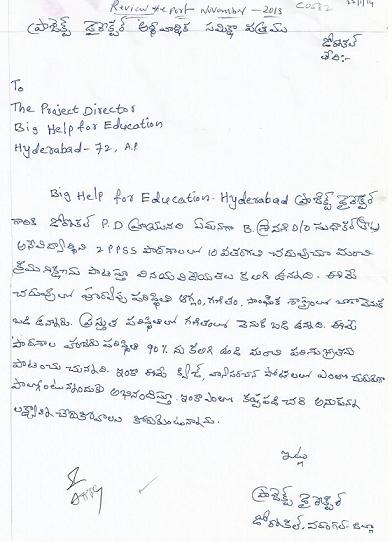 Review Report - November - 2013 C0582
ప్రాజెక్ట్ డైరెక్టర్ అర్ధవార్షిక సమీక్షా పత్రము
డోర్నకల్
తేది:-
To
The Project Director
Big Help for Education
Hyderabad - 72, A.P.
Big Help for Education. Hyderabad ప్రాజెక్ట్ డైరెక్టర్
గారికి డోర్నకల్ P.D వ్రాయునది ఏమనగా B. శ్రావణి D/o సుధాకర్
అనే విద్యార్థిని 2 PPSS పాఠశాలలో 10 వతరగతి చదువుచూ మంచి
క్రమశిక్షణను పాటిస్తూ వినయ విధేయతలు కలిగి ఉన్నది. ఈమె
చదువులో పూర్వపు పరిస్థితి ఆంగ్లం, గణితం, సాంఘిక శాస్త్రంలో బాగా వెనుక
బడి ఉన్నది. ప్రస్తుత పరిస్థితిలో గణితంలో వెనుక బడి ఉన్నది. ఈమె
పాఠశాల హాజరు పరిస్థితి 90% ను కలిగి ఉండి మంచి పరిశుభ్రతను
పాటించు చున్నది. ఇంకా ఈమె క్విజ్, వ్యాసరచన పోటీలలో ఎంతో చురుకుగా
పాల్గొంటున్నందుకు అభినందిస్తూ ఇంకా ఎంతో కష్టపడి చదివి అనుకున్న
లక్ష్యాన్ని చేరుకోవాలని కోరుకుంటున్నాను.
ఇట్లు
ప్రాజెక్ట్ డైరెక్టర్
డోర్నకల్, వరంగల్-జిల్లా